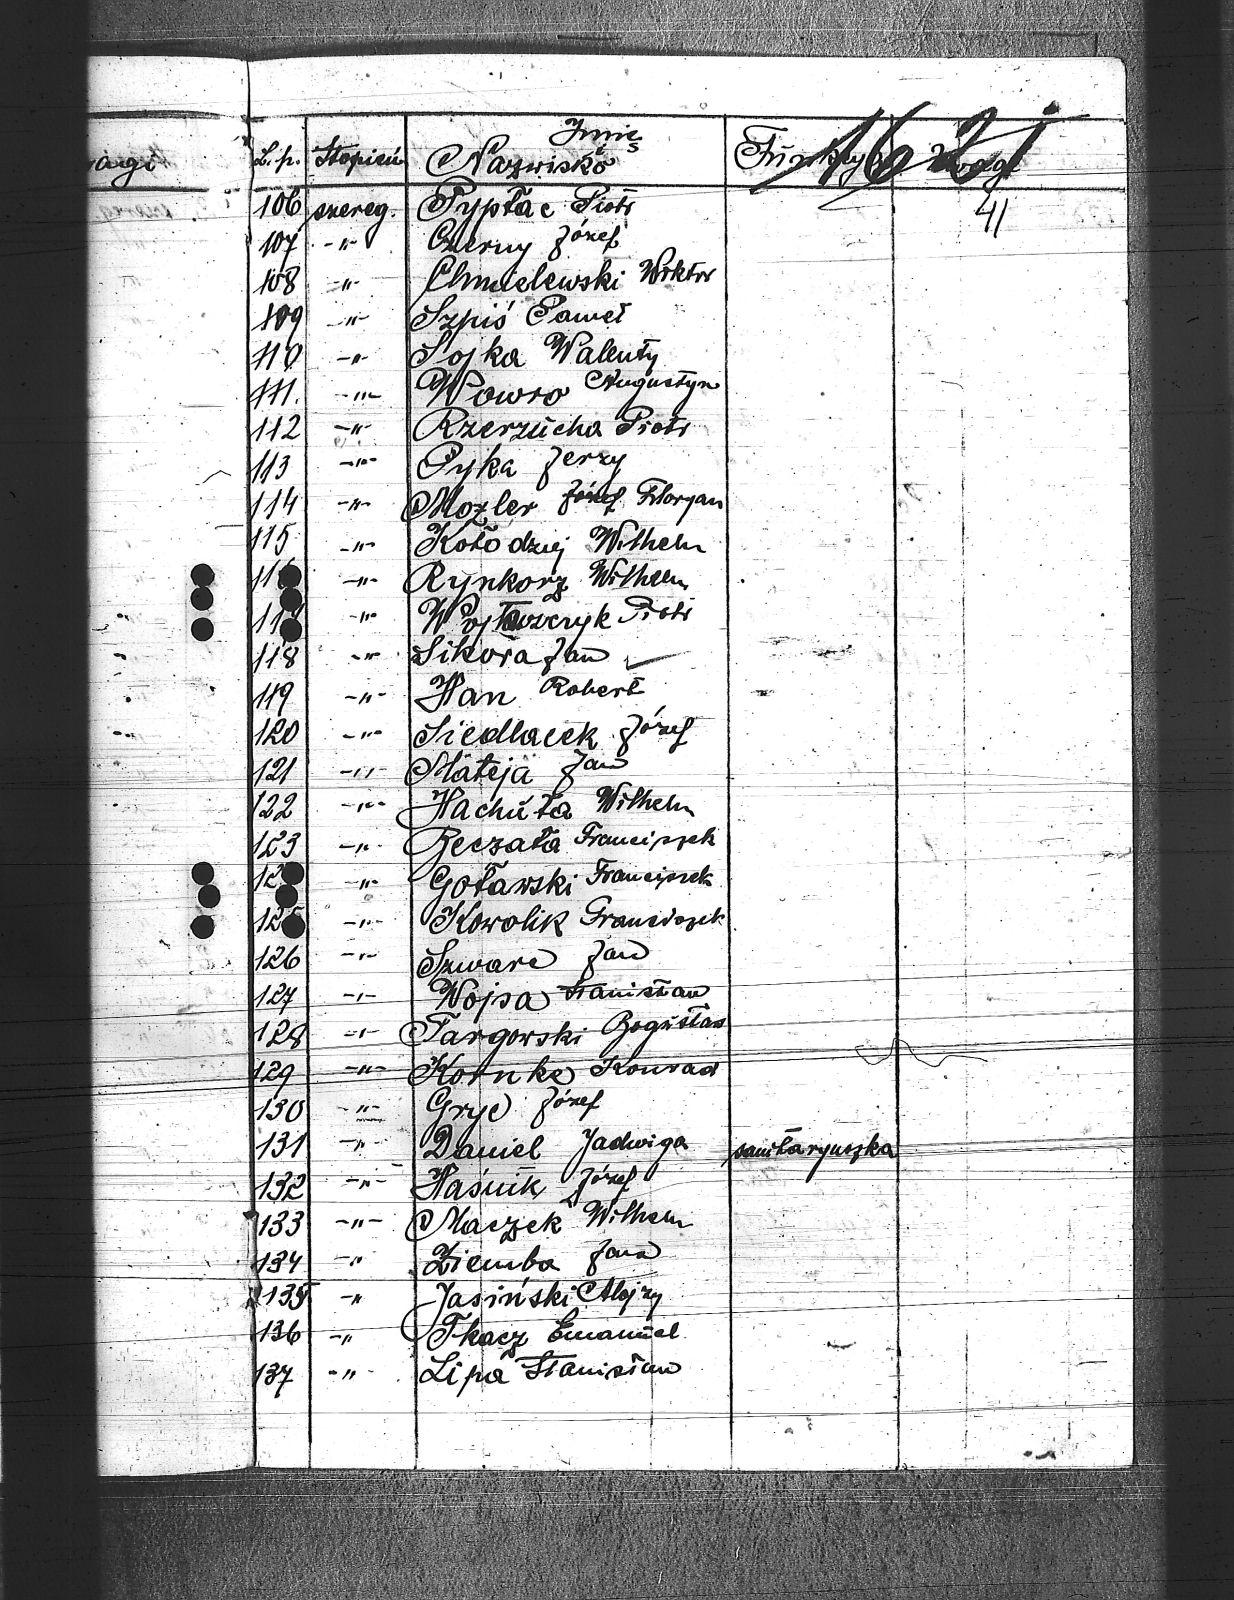 L.p. Stopień Imię i Nazwisko Funkcja Uwagi
1621
41
106 szereg. Pyptac Piotr
107 -"- Czerny Józef
108 -"- Chmielewski Wiktor
109 -"- Szpiś Paweł
110 -"- Sojka Walenty
111. -"- Wowro Augustyn
112 -"- Rzerzucha Piotr
113 -"- Pyka Jerzy
114 -"- Mozler Józef Floryan
115 -"- Kołodziej Wilhelm
116 -"- Rynkorz Wilhelm
117 -"- Piotr
118 -"- Sikora Jan
119 -"- Han Robert
120 -"- Siedlacek Józef
121 -"- Mateja Jan
122 -"- Hachuła Wilhelm
123 -"- Beczała Franciszek
124 -"- Gotarski Franciszek
125 -"- Kowolik Franciszek
126 -"- Szwarc Jan
127 -"- Wojsa Stanisław
128 -"- Targorski Bogusław
129 -"- Kornke Konrad
130 -"- Gryc Józef
131 -"- Daniel Jadwiga sanitaryuszka
132 -"- Haśnik Józef
133 -"- Maczek Wilhelm
134 -"- Ziemba Jan
135 -"- Jasiński Alojzy
136 -"- Tkacz Emanuel
137 -"- Lipa Stanisław